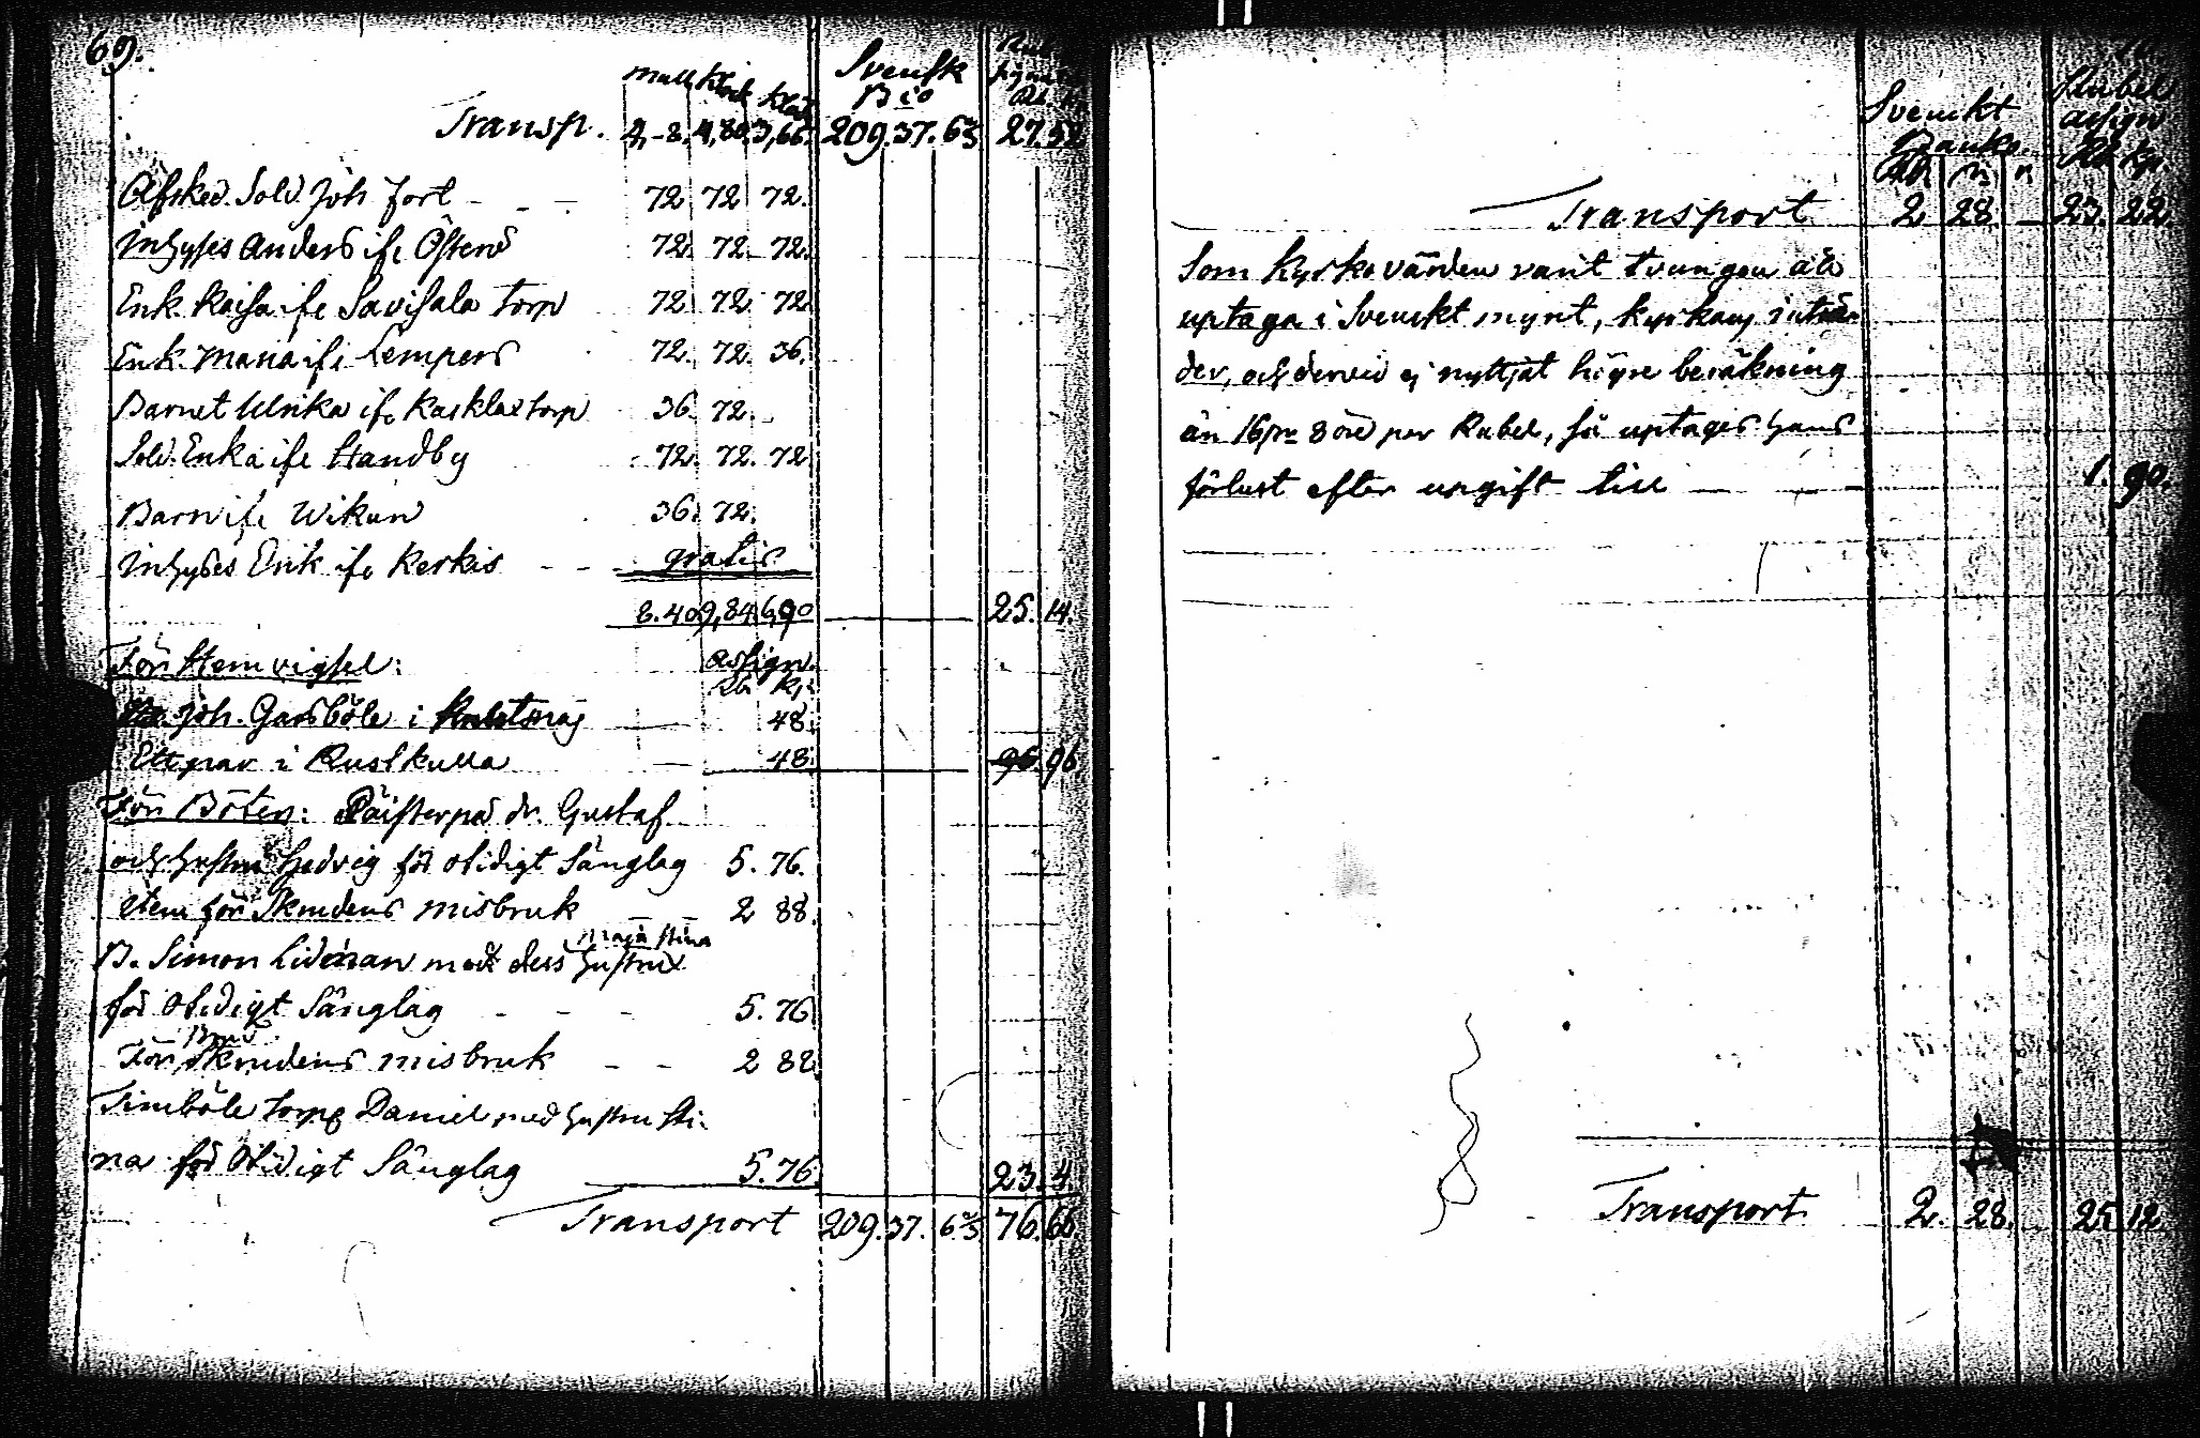 69.
mull Klock Kläd Svensk Rub
B:co assign Rb. k.
Transp. 4,-8. 4,80. 3,66. 209. 37. 6 2/3 27. 52
Afsked. Sold Joh fort - - - 72 72 72.
Inhyses Anders ifr Östend 72. 72. 72.
Enk. Kaisa ifr Savisala torp 72 72 72
Enk. Maria ifr Kempers 72. 72. 36.
Barnet Ulrika ifr Kasklax torp 36. 72. -
Sold. Enka ifr Handby 72. 72. 72
Barn ifr Wikun 36. 72.
Inhyses Erik ifr Kerkis - - - gratis
8.40 9,84 6,90 25. 14.
För Hemvigsel: Assign.
Rb. k.
Joh. Gardsböle i 48.
Ett par i Rustkulla 48. 96.
För Böter: dr. Gustaf
och hustru Hedvig för otidigt Sänglag 5. 76.
dem för Skrudens misbruk - - 2 88.
Maja Stina
B. Simon Lidman med dess hustru
för otidigt Sänglag - - - 5. 76
Brud
För Skrudens misbruk - - 2 88.
Simböle torp Daniel med hustru Sti-
na för otidigt Sänglag 5. 76. 23. 4.
Transport 209. 37. 6 2/3 76. 66.
Svenskt Rubel
Banko. assign
Rd s r. Rb kp.
Transport 2 28 - 23. 22.
Som Kyrkovärden varit tvungen att
uptaga i Svenskt mynt, kyrkans inträ-
der, och dervid ej nyttjat högre beräkning
än 16 8 öre per Rubel, så uptages hans
förlust efter upgift till - - - 1. 90.
Transport 2. 28. - 25 12